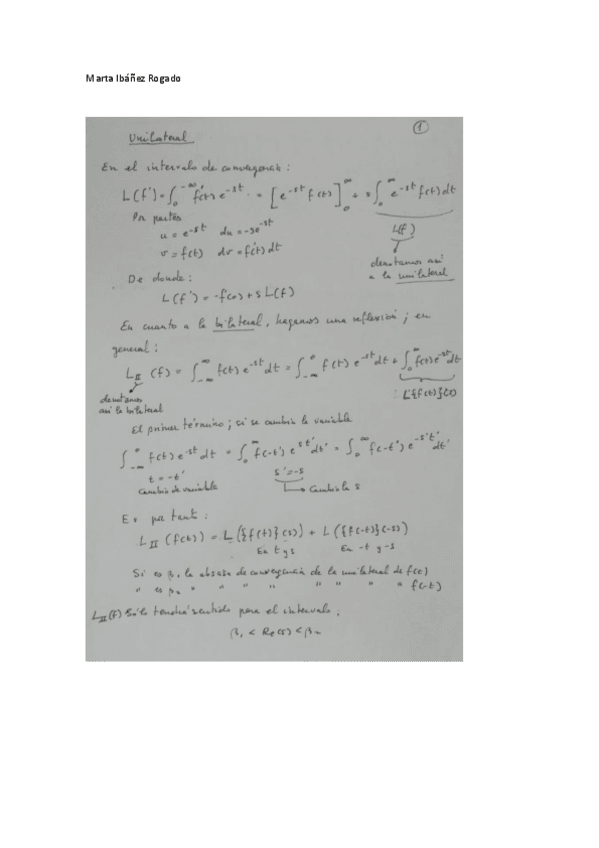 Marta Ibáñez Rogado
①
Unilateral
En el intervalo de convergencia:
L(f') = ∫₀^∞ f'(t) e^{-st} = [e^{-st} f(t)]₀^∞ + s∫₀^∞ e^{-st} f(t) dt
Por partes
u = e^{-st} du = -se^{-st}
v = f(t) dv = f'(t) dt
L(f)
denotamos así
a la unilateral
De donde:
L(f') = -f(0) + s L(f)
En cuanto a la bilateral, hagamos una reflexión; en
general:
L_II (f) = ∫_{-∞}^∞ f(t) e^{-st} dt = ∫_{-∞}^0 f(t) e^{-st} dt + ∫₀^∞ f(t) e^{-st} dt
L{f(t)}(s)
denotamos
así la bilateral
El primer término; si se cambia la variable
∫_{-∞}^0 f(t) e^{-st} dt = ∫₀^∞ f(-t') e^{st'} dt' = ∫₀^∞ f(-t') e^{-s't'} dt'
t = -t' s' = -s
Cambio de variable Cambio la s
Es por tanto:
L_II (f(t)) = L({f(t)}(s)) + L({f(-t)}(-s))
En t y s En -t y -s
Si es β₁ la abscisa de convergencia de la unilateral de f(t)
" es β₂ " " " " " " " " f(-t)
L_II(f) Sólo tendrá sentido para el intervalo:
β₁ < Re(s) < β₂